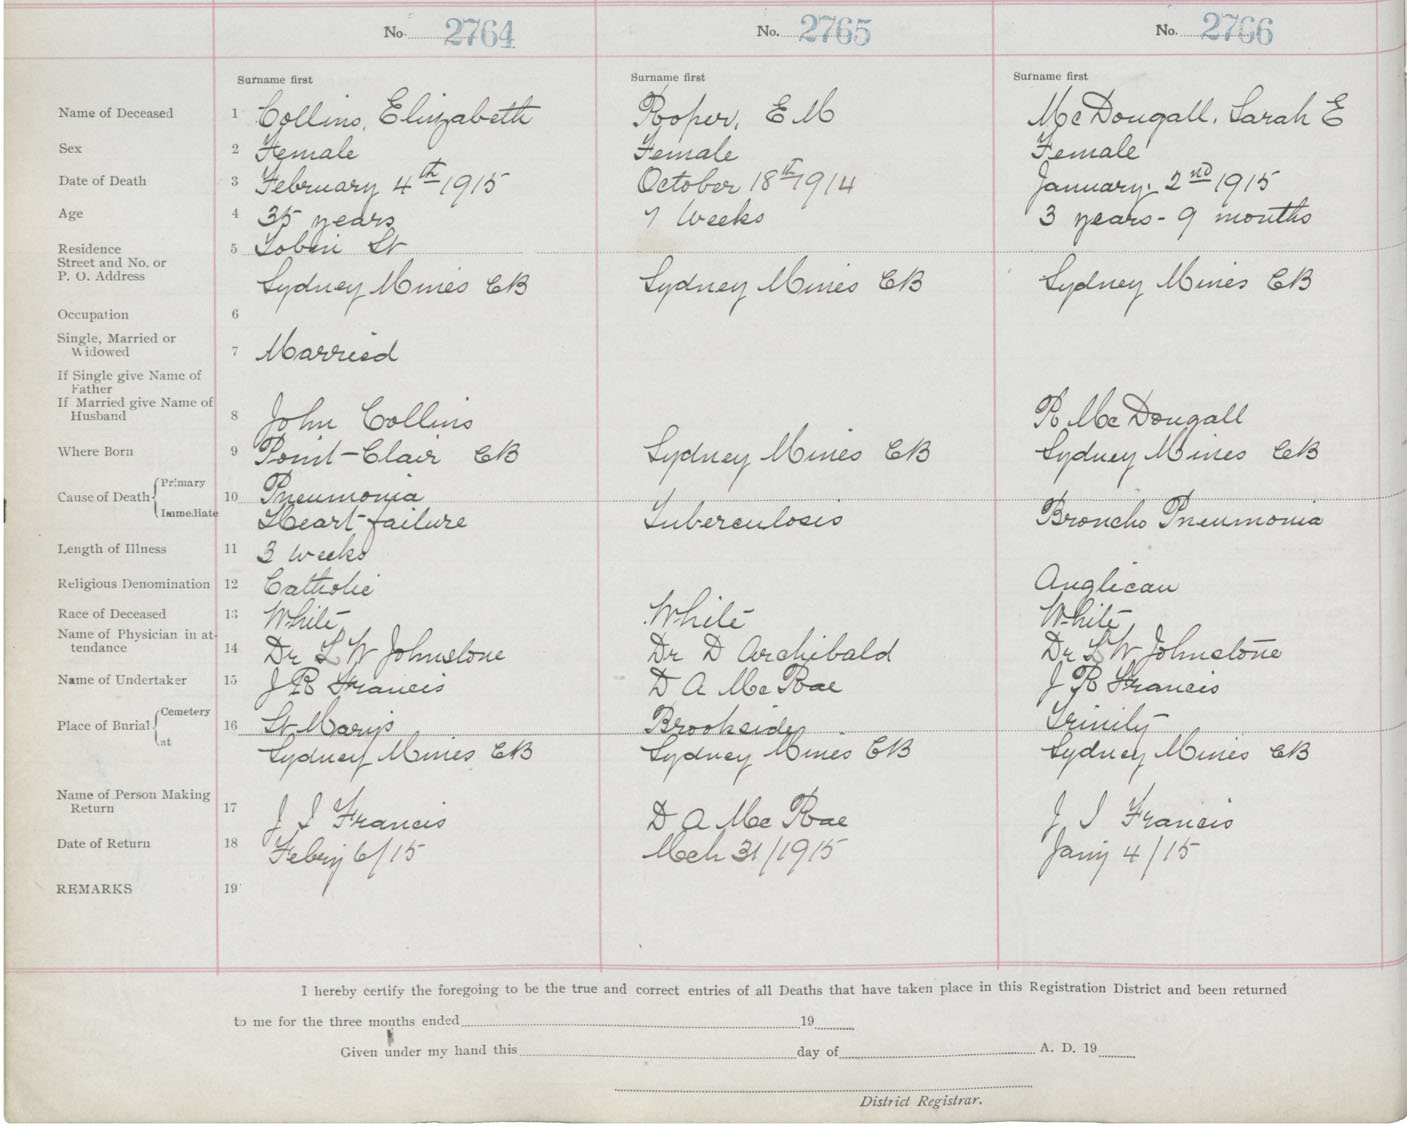 No. 2764 No. 2765 No. 2766
Surname first Surname first Surname first
Name of Deceased 1 Collins, Elizabeth Rooper, E M McDougall, Sarah E
Sex 2 Female Female Female
Date of Death 3 February 4th 1915 October 18th 1914 January 2nd 1915
Age 4 35 years 7 Weeks 3 years - 9 months
Residence 5 Tobin St
Street and No. or
P. O. Address Sydney Mines CB Sydney Mines CB Sydney Mines CB
Occupation 6
Single, Married or
Widowed 7 Married
If Single give Name of
Father
If Married give Name of
Husband 8 John Collins R McDougall
Where Born 9 Point-Clair CB Sydney Mines CB Sydney Mines CB
Cause of Death Primary 10 Pneumonia
Immediate Heart-failure Tuberculosis Broncho Pneumonia
Length of Illness 11 3 weeks
Religious Denomination 12 Catholic Anglican
Race of Deceased 13 White White White
Name of Physician in at-
tendance 14 Dr L W Johnstone Dr D Archibald Dr L W Johnstone
Name of Undertaker 15 J R Francis D A McRae J R Francis
Place of Burial Cemetery 16 St Marys Brookside Trinity
at Sydney Mines CB Sydney Mines CB Sydney Mines CB
Name of Person Making
Return 17 J I Francis D A McRae J I Francis
Date of Return 18 Febry 6/15 Mch 31/1915 Jany 4/15
REMARKS 19
I hereby certify the foregoing to be the true and correct entries of all Deaths that have taken place in this Registration District and been returned
to me for the three months ended 19
Given under my hand this day of A. D. 19
District Registrar.